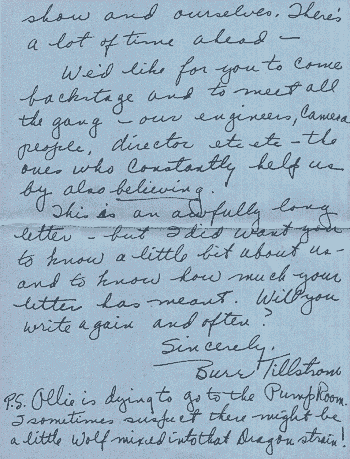 show and ourselves. There's
a lot of time ahead —
We'd like for you to come
backstage and to meet all
the gang — our engineers, camera
people, director etc etc — the
ones who constantly help us
by also believing.
This is an awfully long
letter — but I did want you
to know a little bit about us —
and to know how much your
letter has meant. Will you
write again and often?
Sincerely,
Burr Tillstrom
P.S. Ollie is dying to go to the Pump Room.
I sometimes suspect there might be
a little Wolf mixed into that Dragon strain!